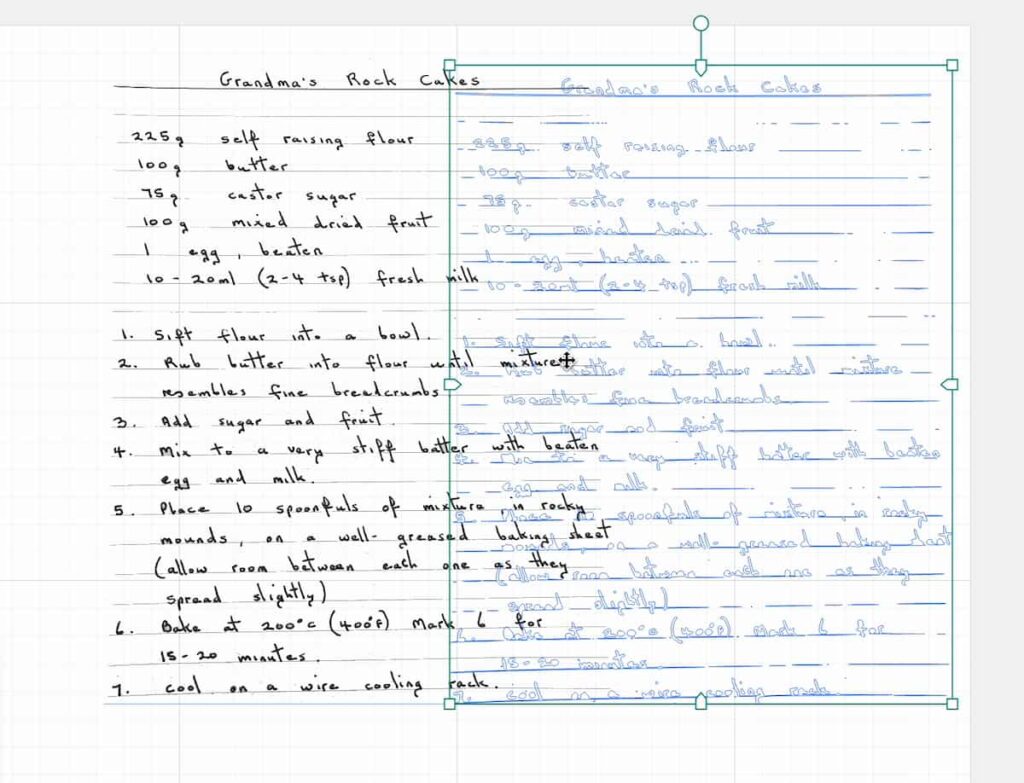 Grandma's Rock Cakes
225g self raising flour
100g butter
75g castor sugar
100g mixed dried fruit
1 egg, beaten
10 - 20ml (2-4 tsp) fresh milk
1. Sift flour into a bowl.
2. Rub butter into flour until mixture
resembles fine breadcrumbs
3. Add sugar and fruit.
4. Mix to a very stiff batter with beaten
egg and milk.
5. Place 10 spoonfuls of mixture, in rocky
mounds, on a well-greased baking sheet
(allow room between each one as they
spread slightly)
6. Bake at 200°c (400°F) Mark 6 for
15-20 minutes.
7. Cool on a wire cooling rack.
Grandma's Rock Cakes
225g self raising flour
100g butter
75g castor sugar
100g mixed dried fruit
1 egg, beaten
10 - 20ml (2-4 tsp) fresh milk
1. Sift flour into a bowl.
2. Rub butter into flour until mixture
resembles fine breadcrumbs
3. Add sugar and fruit.
4. Mix to a very stiff batter with beaten
egg and milk.
5. Place 10 spoonfuls of mixture, in rocky
mounds, on a well-greased baking sheet
(allow room between each one as they
spread slightly)
6. Bake at 200°c (400°F) Mark 6 for
15-20 minutes.
7. Cool on a wire cooling rack.